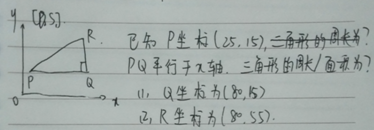 y [DS]
R
P
Q
O
x
已知 P坐标(25.15), 三角形的周长为?
PQ平行于x轴. 三角形的周长/面积为?
(1). Q坐标为(80,15)
(2), R坐标为(80.55).